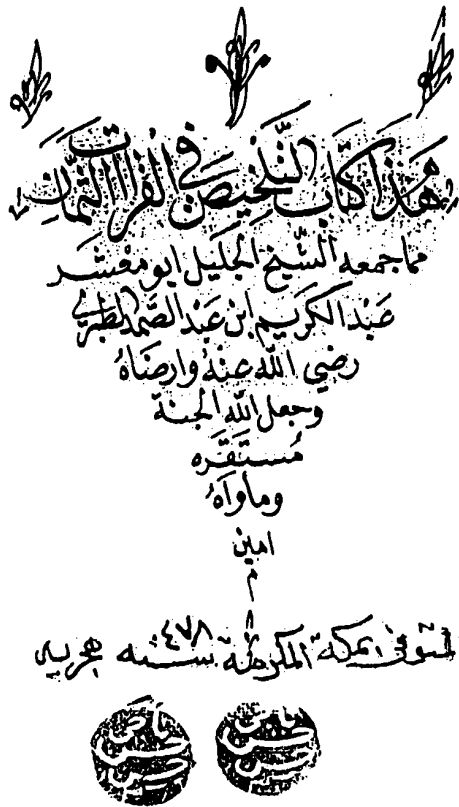 هَذَا كِتَابُ التَّلْخِيصِ فِي القُرَاآت الثَّمَانِ
مما جمعه الشيخ الجليل ابو معْشَر
عَبْد الكَرِيم ابن عَبد الصَّمد الطبري
رضي الله عنهُ وارضَاهُ
وجعل الله الجنة
مُستَقَره
ومأواهُ
امين
م
المتوفى بمكة المكرمة سنه ٤٧٨ هجريه